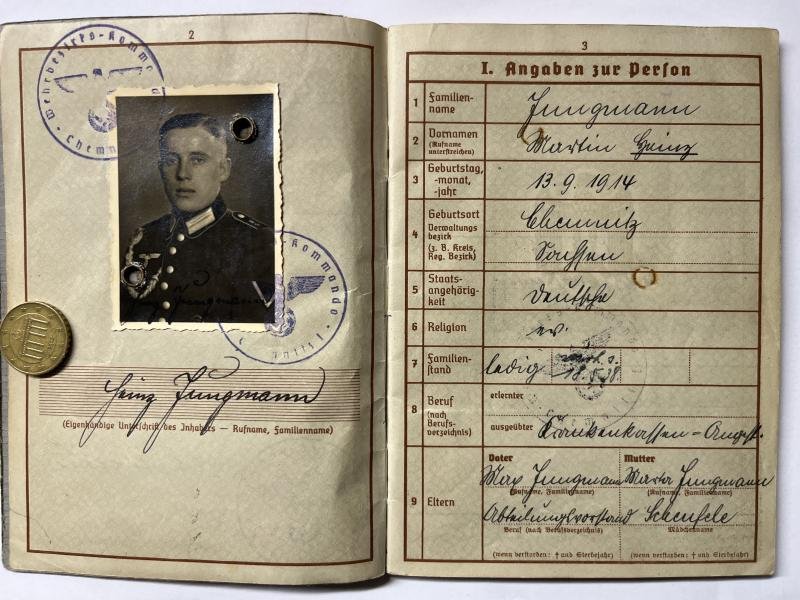 2
Wehrbezirks-Kommando
Chemnitz I
Heinz Jungmann
Heinz Jungmann
(Eigenhändige Unterschrift des Inhabers — Rufname, Familienname)
3
I. Angaben zur Person
1 Familien-name Jungmann
2 Vornamen (Rufname unterstreichen) Martin Heinz
3 Geburtstag, -monat, -jahr 13.9.1914
4 Geburtsort Verwaltungsbezirk (z. B. Kreis, Reg. Bezirk) Chemnitz
Sachsen
5 Staats-angehörig-keit deutsche
6 Religion ev.
7 Familien-stand ledig verh. s. 18.5.38
8 Beruf (nach Berufs-verzeichnis) erlernter
ausgeübter Krankenkassen-Angest.
9 Eltern
Vater Mutter
Max Jungmann Marta Jungmann
(Rufname, Familienname) (Rufname, Familienname)
Abteilungsvorstand Scheufele
Beruf (nach Berufsverzeichnis) Mädchenname
(wenn verstorben: † und Sterbejahr) (wenn verstorben: † und Sterbejahr)